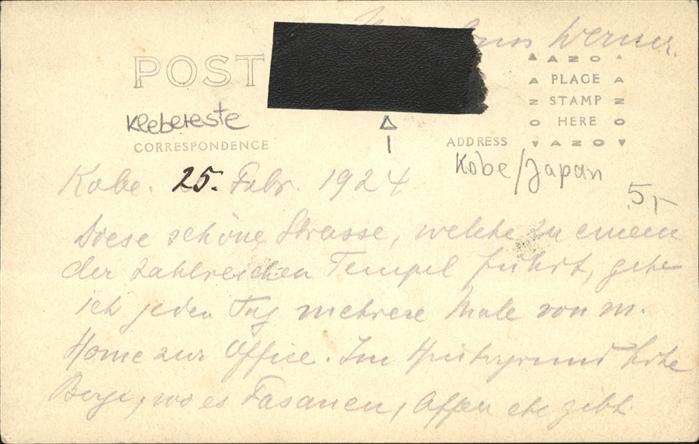 Hans Werner.
POST
AZO
PLACE
STAMP
HERE
AZO
Klebereste
CORRESPONDENCE
ADDRESS
Kobe/Japan
5,-
Kobe. 25. Febr. 1924
Diese schöne Strasse, welche zu einem
der zahlreichen Tempel führt, gehe
ich jeden Tag mehrere Male von m.
Home zur Office. Im Hintergrund hohe
Berge, wo es Fasanen, Affen etc gibt.